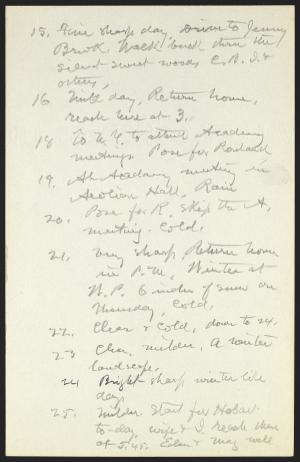 15. Fine sharp day, Drive to Jenny
Brook. Walk back thru the
silent sweet woods C. B. J. &
others,
16 Mild day, Return home,
reach here at 3.
18 To N.Y. to attend Academy
meetings. Pose for Roland
19. At Academy meeting in
Aeolian Hall. Rain
20. Pose for R. Skip the A.
meeting. Cold.
21. Very sharp, Return home
in P.M. Winter at
W.P. 6 inches of snow on
Thursday, Cold,
22. Clear & Cold, down to 24.
23 Clear, milder, A winter
landscape.
24 Bright sharp winter like
day.
25. Milder. Start for Hobart
to-day, wife & I, reach there
at 5,45. Eden & Mag well